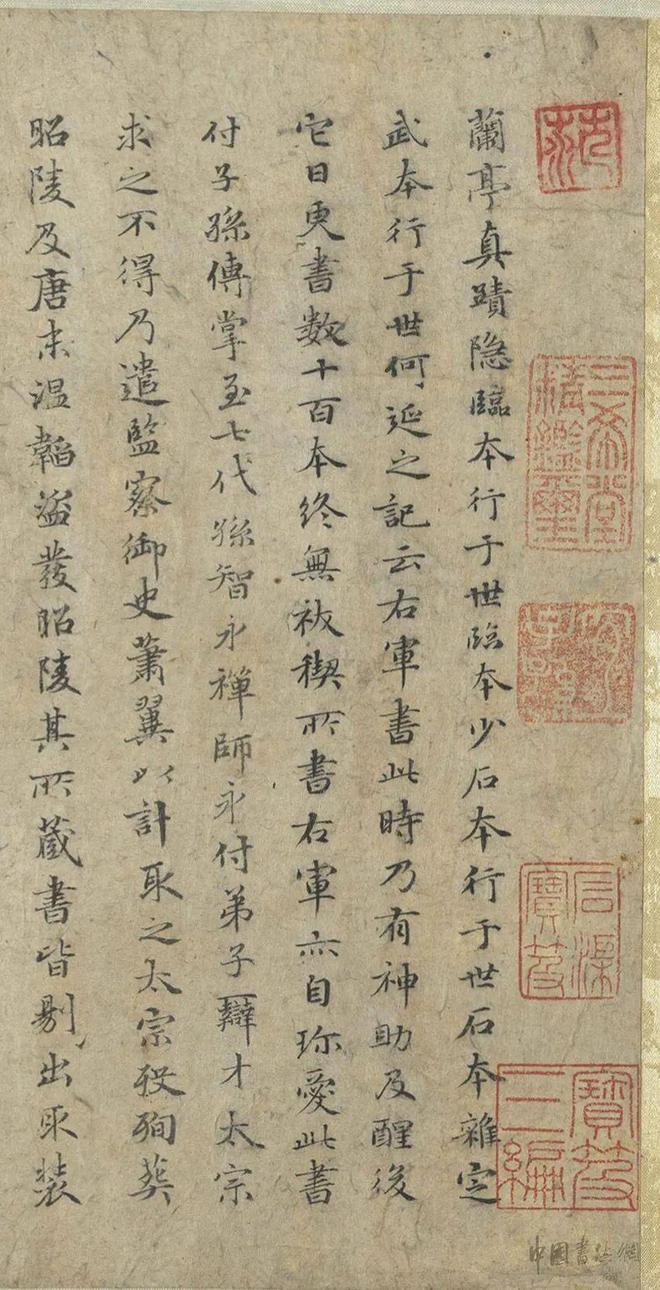 三希堂精鑑璽
石渠寶笈
寶笈三編
蘭亭真蹟隐臨本行于世臨本少石本行于世石本雜定
武本行于世何延之記云右軍書此時乃有神助及醒後
它日更書数十百本終無祓禊所書右軍亦自珎愛此書
付子孫傳掌至七代孫智永禪師永付弟子辯才太宗
求之不得乃遣監察御史蕭翼以計取之太宗殁殉葬
昭陵及唐末温韜盗發昭陵其所蔵書皆剔出取装
中國書法網